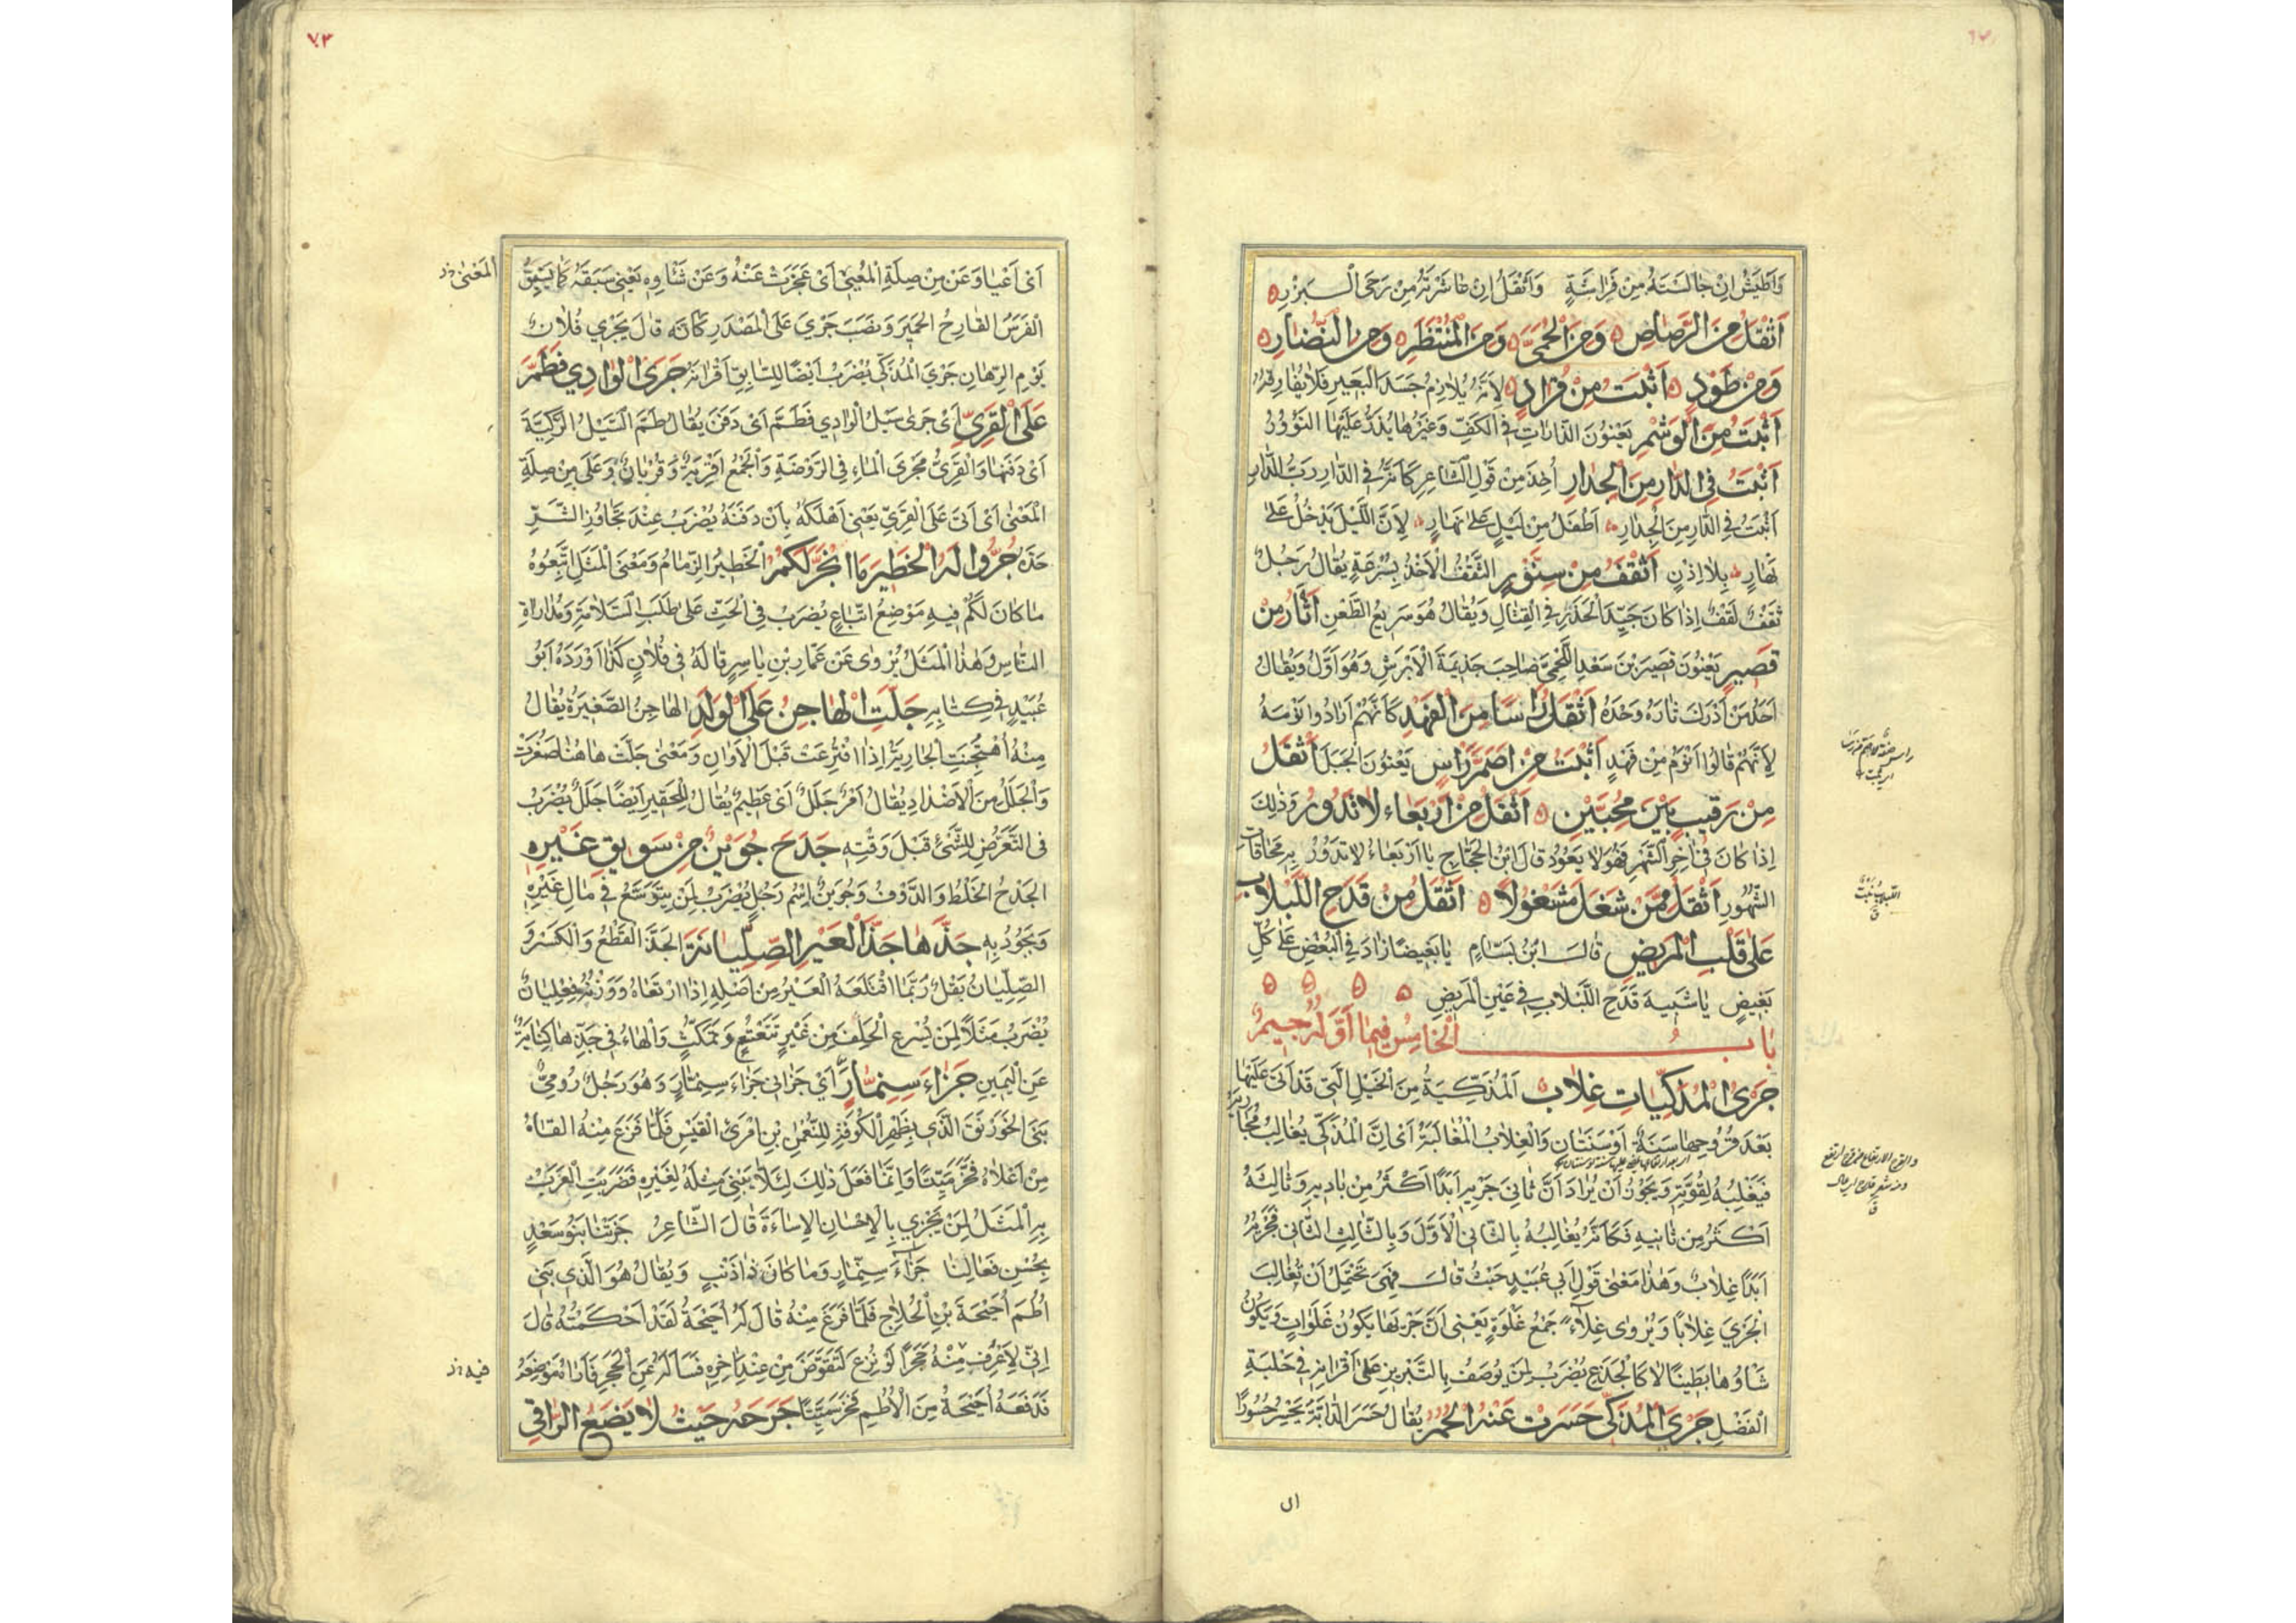 وَاَطْيَشُ اِنْ جَالَسْتَهُ مِنْ فَرَاشَةٍ وَاَثْقَلُ اِنْ عَاشَرْتَهُ مِنْ رَحَى الْبِزْرِ
اَثْقَلُ مِنَ الرَّصَاصِ وَمِنَ الْحُمَّى وَمِنَ الْمُنْتَظَرِ وَمِنَ النُّضَارِ
وَمِنْ طَوْدٍ اَثْبَتُ مِنْ قُرَادٍ لِاَنَّهُ يُلَازِمُ جَسَدَ الْبَعِيرِ فَلَا يُفَارِقُهُ
اَثْبَتُ مِنَ الْوَشْمِ يَعْنُونَ الدَّارَاتِ فِى الْكَفِّ وَغَيْرِهَا يُذَرُّ عَلَيْهَا النَّؤُوْرُ
اَثْبَتُ فِى الدَّارِ مِنَ الْجِدَارِ اُخِذَ مِنْ قَوْلِ الشَّاعِرِ كَاَنَّهُ فِى الدَّارِ رَبُّ الدَّارِ
اَثْبَتُ فِى الدَّارِ مِنَ الْجِدَارِ اَطْفَلُ مِنْ لَيْلٍ عَلَى نَهَارٍ لِاَنَّ اللَّيْلَ يَدْخُلُ عَلَى
نَهَارٍ بِلَا اِذْنٍ اَثْقَفُ مِنْ سِنَّوْرٍ الثَّقْفُ الْاَخْذُ بِسُرْعَةٍ يُقَالُ رَجُلٌ
ثَقْفٌ لَقْفٌ اِذَا كَانَ جَيِّدَ الْحَذَرِ فِى الْقِتَالِ وَيُقَالُ هُوَ سَرِيعُ الطَّعْنِ اَثْأَرُ مِنْ
قَصِيرٍ يَعْنُونَ قَصِيرَ بْنَ سَعْدٍ اللَّخْمِىَّ صَاحِبَ جَذِيمَةَ الْاَبْرَشِ وَهُوَ اَوَّلُ وَيُقَالُ
اَحَدُ مَنْ اَدْرَكَ ثَارَهُ وَحْدَهُ اَثْقَلُ رَاْسًا مِنَ الْفَهْدِ كَاَنَّهُمْ اَرَادُوا نَوْمَهُ
لِاَنَّهُمْ قَالُوا اَنْوَمُ مِنْ فَهْدٍ اَثْبَتُ مِنْ اَصَمِّ رَأْسٍ يَعْنُونَ الْجَبَلَ اَثْقَلُ
مِنْ رَقِيبٍ بَيْنَ مُحِبَّيْنِ اَثْقَلُ مِنْ اَرْبَعَاءَ لَا تَدُورُ وَذٰلِكَ
اِذَا كَانَ فِى اٰخِرِ الشَّهْرِ فَهُوَ لَا يَعُودُ قَالَ ابْنُ الْحَجَّاجِ يَا اَرْبَعَاءُ لَا تَدُوْرُ بِهِ مَحَاقَاتُ
الشُّهُورِ اَثْقَلُ مِمَّنْ شَغَلَ مَشْغُولًا اَثْقَلُ مِنْ قَدَحِ اللَّبْلَابِ
عَلَى قَلْبِ الْمَرِيضِ قَالَ ابْنُ بَسَّامٍ يَا بَغِيضًا زَادَ فِى الْبُغْضِ عَلَى كُلِّ
بَغِيضٍ يَا شَبِيهَ قَدَحِ اللَّبْلَابِ فِى عَيْنِ الْمَرِيضِ
بَابُ الْخَامِسُ فِيمَا اَوَّلُهُ جِيمٌ
جَرْىُ الْمُذَكِّيَاتِ غِلَابٌ اَلْمُذَكِّيَةُ مِنَ الْخَيْلِ الَّتِى قَدْ اَتَى عَلَيْهَا
بَعْدَ قُرُوحِهَا سَنَةٌ اَوْ سَنَتَانِ وَالْغِلَابُ الْمُغَالَبَةُ اَىْ اِنَّ الْمُذَكِّى يُغَالِبُ مُجَارِيَهُ
فَيَغْلِبُهُ لِقُوَّتِهِ وَيَجُوزُ اَنْ يُرَادَ اَنَّ ثَانِىَ جَرْيِهِ اَبَدًا اَكْثَرُ مِنْ بَادِيهِ وَثَالِثَهُ
اَكْثَرُ مِنْ ثَانِيهِ فَكَاَنَّهُ يُغَالِبُهُ بِالثَّانِى الْاَوَّلَ وَبِالثَّالِثِ الثَّانِى فَجَرْيُهُ
اَبَدًا غِلَابٌ وَهٰذَا مَعْنٰى قَوْلِ اَبِى عُبَيْدٍ حَيْثُ قَالَ فَهِىَ تَحْتَمِلُ اَنْ تُغَالِبَ
الْجَرْىَ غِلَابًا وَيُرْوٰى غِلَاءٌ جَمْعُ غَلْوَةٍ يَعْنِى اَنَّ جَرْيَهَا يَكُونُ غَلَوَاتٍ وَيَكُونُ
شَأْوُهَا بَطِينًا لَا كَالْجَذَعِ يُضْرَبُ لِمَنْ يُوصَفُ بِالتَّبْرِيزِ عَلَى اَقْرَانِهِ فِى حَلْبَةِ
الْفَضْلِ جَرْىَ الْمُذَكِّى حَسَرَتْ عَنْهُ الْحُمُرُ يُقَالُ حَسَرَ الدَّابَّةُ يَحْسِرُ حُسُورًا
اى
٧٣
المَعْنٰى
اَىْ اَعْيَا وَعَنْ مِنْ صِلَةِ الْمَعْنٰى اَىْ عَجَزَتْ عَنْهُ وَعَنْ شَأْوِهِ يَعْنِى سَبَقَهُ كَمَا يَسْبِقُ
الْفَرَسُ الْقَارِحُ الْحَمِيرَ وَنَصَبَ جَرْىَ عَلَى الْمَصْدَرِ كَاَنَّهُ قَالَ يَجْرِى فُلَانٌ
يَوْمَ الرِّهَانِ جَرْىَ الْمُذَكِّى يُضْرَبُ اَيْضًا لِلسَّابِقِ اَقْرَانَهُ جَرَى الْوَادِي فَطَمَّ
عَلَى الْقَرِىِّ اَىْ جَرٰى سَيْلُ الْوَادِي فَطَمَّ اَىْ دَفَنَ يُقَالُ طَمَّ السَّيْلُ الرَّكِيَّةَ
اَىْ دَفَنَهَا وَالْقَرِىُّ مَجْرَى الْمَاءِ فِى الرَّوْضَةِ وَالْجَمْعُ اَقْرِيَةٌ وَقُرْيَانٌ وَعَلَى مِنْ صِلَةِ
الْمَعْنٰى اَىْ اَتَى عَلَى الْقَرِىِّ يَعْنِى اَهْلَكَهُ بِاَنْ دَفَنَهُ يُضْرَبُ عِنْدَ تَجَاوُزِ الشَّرِّ
حَدَّهُ جُرُّوا لَهُ الْخَطِيرَ مَا انْجَرَّ لَكُمْ الْخَطِيرُ الزِّمَامُ وَمَعْنَى الْمَثَلِ اتَّبِعُوهُ
مَا كَانَ لَكُمْ فِيهِ مَوْضِعُ اتِّبَاعٍ يُضْرَبُ فِى الْحَثِّ عَلَى طَلَبِ السَّلَامَةِ وَمُدَارَاةِ
النَّاسِ وَهٰذَا الْمَثَلُ يُرْوٰى عَنْ عَمَّارِ بْنِ يَاسِرٍ قَالَهُ فِى فُلَانٍ كَذَا اَوْرَدَهُ اَبُو
عُبَيْدٍ فِى كِتَابِهِ جَلَّتِ الْهَاجِنُ عَنِ الْوَلَدِ الْهَاجِنُ الصَّغِيرَةُ يُقَالُ
مِنْهُ اُهْتُجِنَتِ الْجَارِيَةُ اِذَا افْتُرِعَتْ قَبْلَ الْاَوَانِ وَمَعْنٰى جَلَّتْ هَاهُنَا صَغُرَتْ
وَالْجَلَلُ مِنَ الْاَضْدَادِ يُقَالُ اَمْرٌ جَلَلٌ اَىْ عَظِيمٌ يُقَالُ لِلْحَقِيرِ اَيْضًا جَلَلٌ يُضْرَبُ
فِى التَّعَرُّضِ لِلشَّىْءِ قَبْلَ وَقْتِهِ جَدَحَ جُوَيْنٌ مِنْ سَوِيقِ غَيْرِهِ
الْجَدْحُ الْخَلْطُ وَالدَّوْفُ وَجُوَيْنٌ اِسْمُ رَجُلٍ يُضْرَبُ لِمَنْ يَتَوَسَّعُ فِى مَالِ غَيْرِهِ
وَيَجُودُ بِهِ جَذَّهَا جَذَّ الْعَيْرِ الصِّلِّيَانَةَ الْجَذُّ الْقَطْعُ وَالْكَسْرُ وَ
الصِّلِّيَانُ بَقْلٌ رُبَّمَا اقْتَلَعَهُ الْعَيْرُ مِنْ اَصْلِهِ اِذَا ارْتَعَاهُ وَوَزْنُهُ فِعْلِيَانٌ
يُضْرَبُ مَثَلًا لِمَنْ يُسْرِعُ الْحَلِفَ مِنْ غَيْرِ تَتَعْتُعٍ وَتَمَكُّثٍ وَالْهَاءُ فِى جَذَّهَا كِنَايَةٌ
عَنِ الْيَمِينِ جَزَاءَ سِنِمَّارَ اَىْ جَزَانِى جَزَاءَ سِنِمَّارٍ وَهُوَ رَجُلٌ رُومِىٌّ
بَنَى الْخَوَرْنَقَ الَّذِى بِظَهْرِ الْكُوفَةِ لِلنُّعْمٰنِ بْنِ امْرِئِ الْقَيْسِ فَلَمَّا فَرَغَ مِنْهُ اَلْقَاهُ
مِنْ اَعْلَاهُ فَخَرَّ مَيِّتًا وَاِنَّمَا فَعَلَ ذٰلِكَ لِئَلَّا يَبْنِىَ مِثْلَهُ لِغَيْرِهِ فَضَرَبَتِ الْعَرَبُ
بِهِ الْمَثَلَ لِمَنْ يَجْزِي بِالْاِحْسَانِ الْاِسَاءَةَ قَالَ الشَّاعِرُ جَزَتْنَا بَنُو سَعْدٍ
بِحُسْنِ فَعَالِنَا جَزَاءَ سِنِمَّارٍ وَمَا كَانَ ذَا ذَنْبٍ وَيُقَالُ هُوَ الَّذِى بَنٰى
اُطُمَ اُحَيْحَةَ بْنِ الْجُلَاحِ فَلَمَّا فَرَغَ مِنْهُ قَالَ لَهُ اُحَيْحَةُ لَقَدْ اَحْكَمْتَهُ قَالَ
اِنِّى لَاَعْرِفُ مِنْهُ حَجَرًا لَوْ نُزِعَ لَتَقَوَّضَ مِنْ عِنْدِ اٰخِرِهِ فَسَاَلَهُ عَنِ الْحَجَرِ فَاَرَاهُ مَوْضِعَهُ
فيه
فَدَفَعَهُ اُحَيْحَةُ مِنَ الْاُطُمِ فَخَرَّ مَيِّتًا جَرَحَهُ حَيْثُ لَا يَضَعُ الرَّاقِى